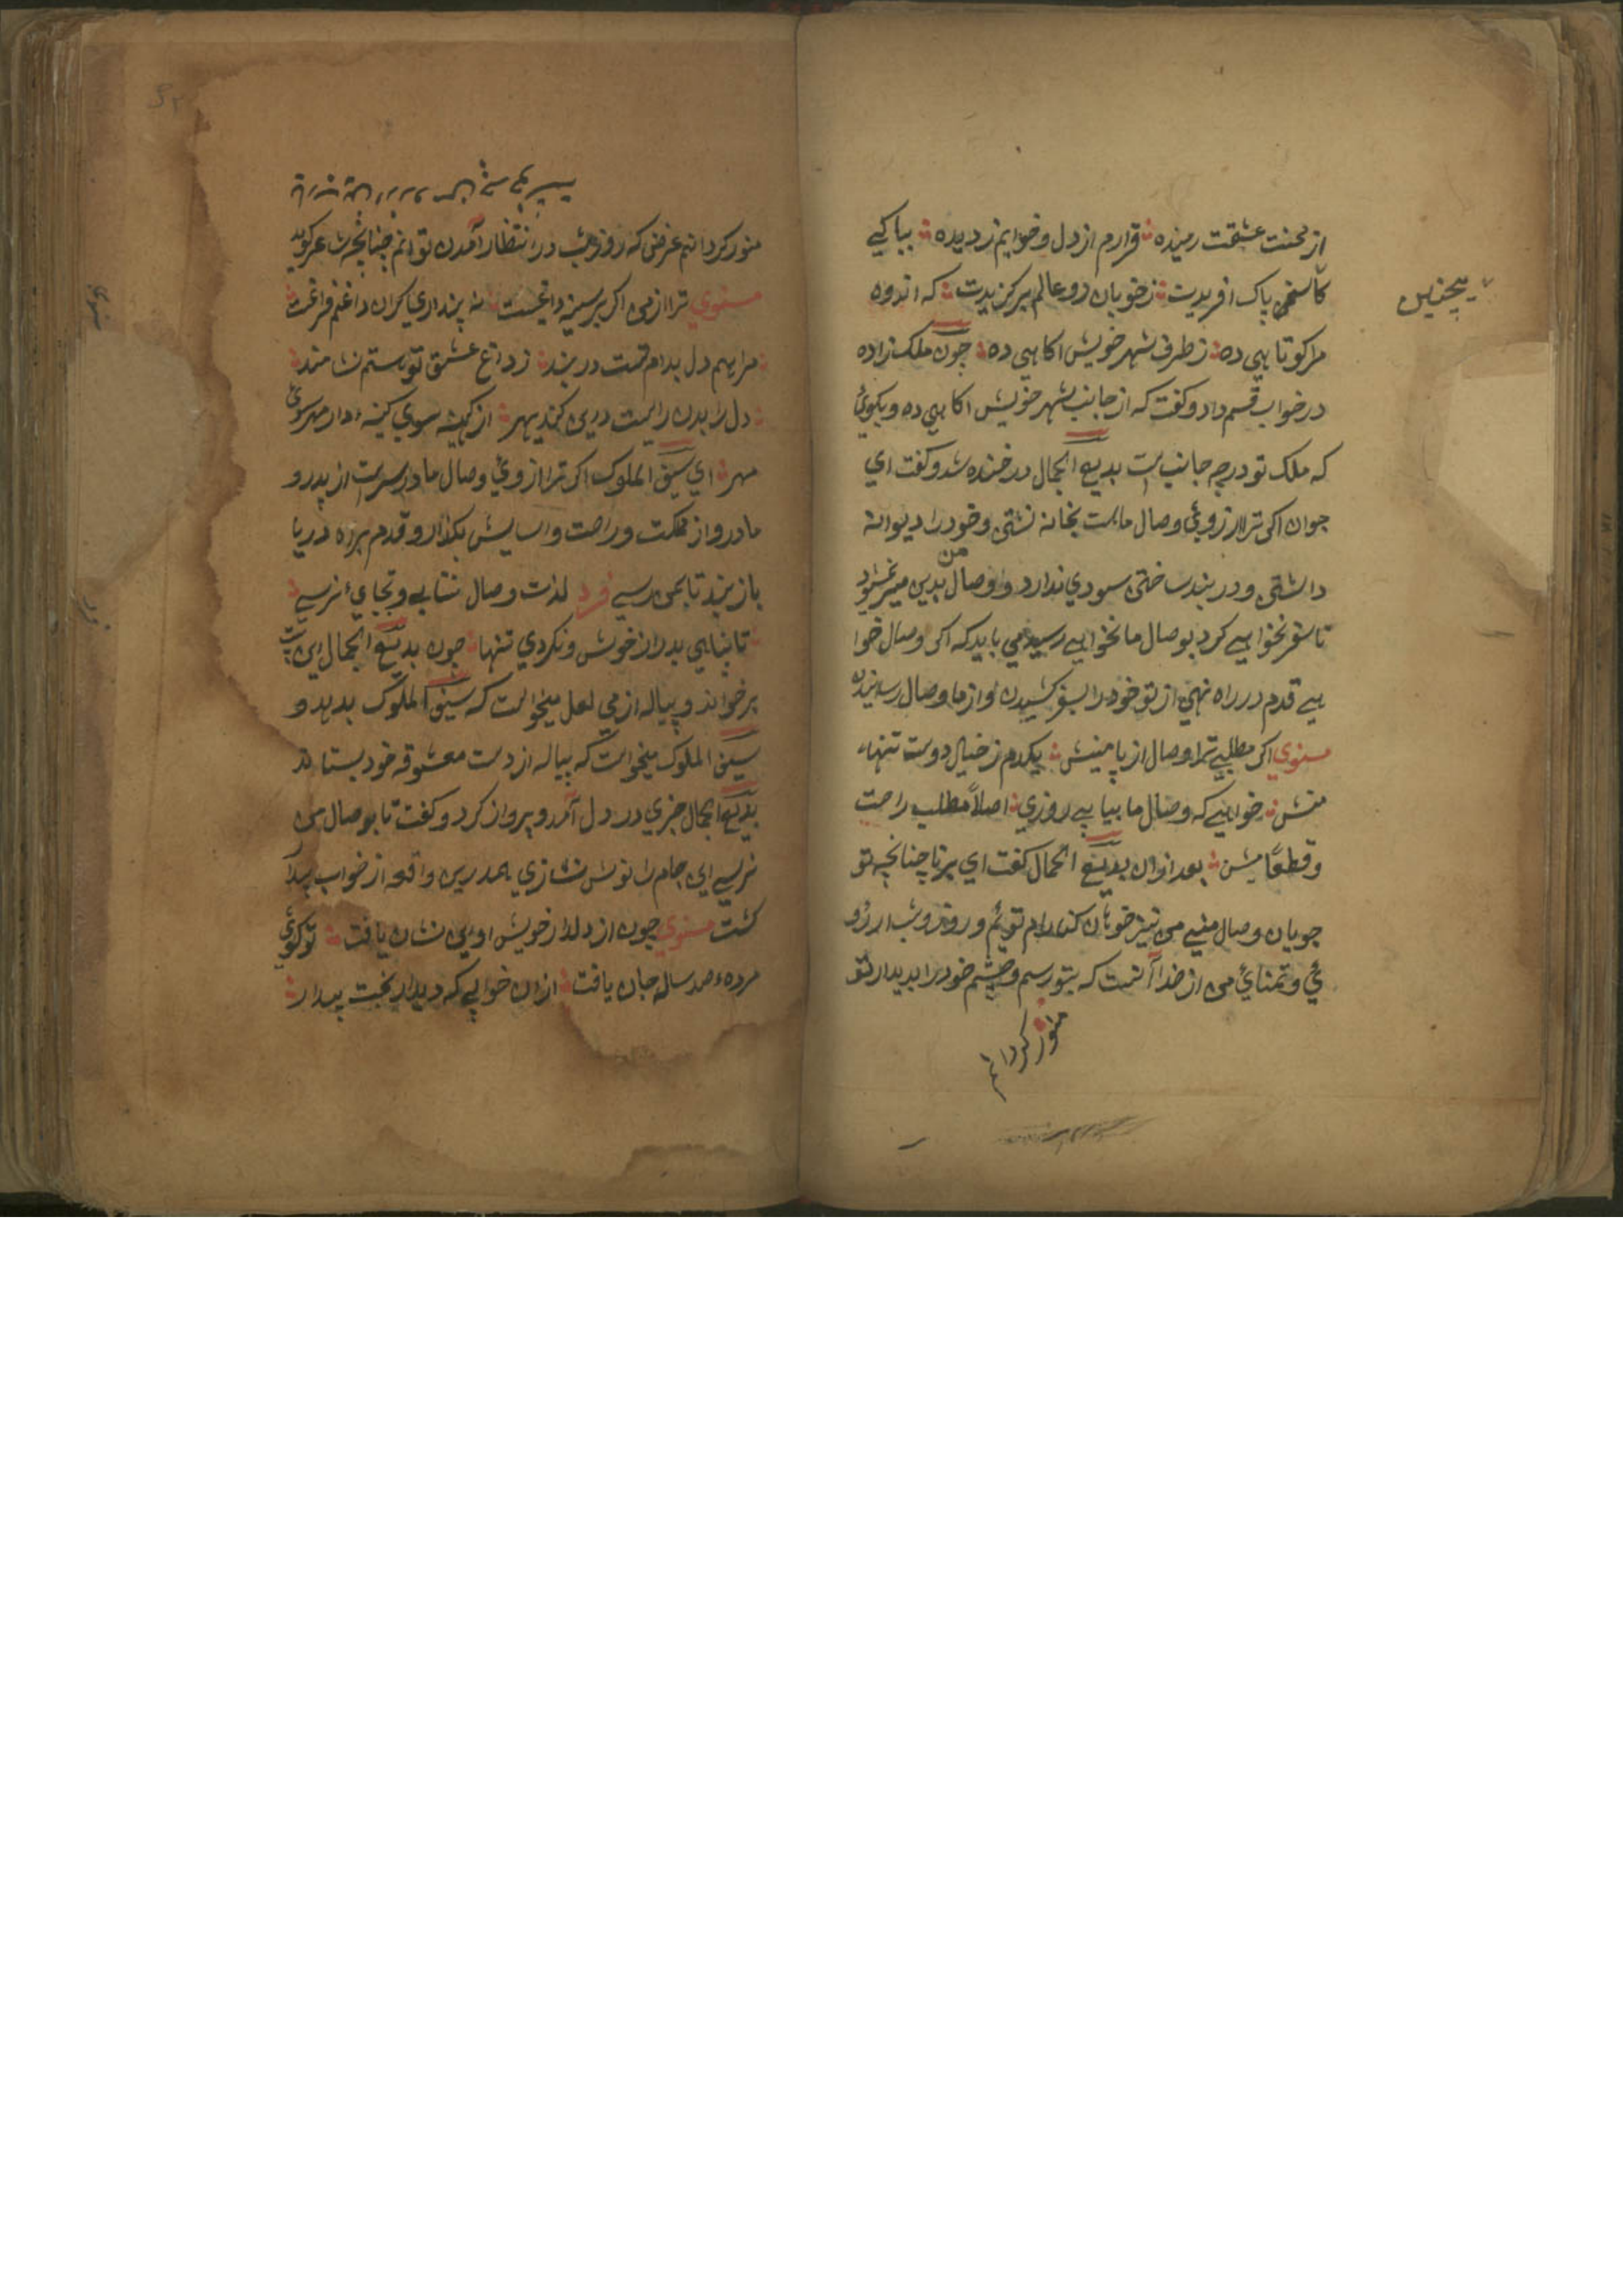 از محنت عشقت رمیده ؞ قرارم از دل و خوابم ز دیده ؞ بپاکی
کاینچنین پاک افریدت ؞ ز خوبان دو عالم برکزیدت ؞ که اندوه
مرا کوتاهی ده ؞ ز طرف شهر خویش اکاهی ده ؞ چون ملک زاده
در خواب قسم داد و کفت که از جانب شهر خویش اکاهی ده و بکوئی
که ملک تو در چه جانب است بدیع الجمال در خنده شد و کفت ای
جوان اکر ترا ارزوئی وصال ماست بخانه نشتی و خود را دیوانه
داشتی و در بند ساختی سودی ندارد و وصال من بدین میسر نشود
تا سفر نخواهی کرد بوصال ما نخواهی رسید می باید که اکر وصال خوا
هی قدم در راه نهی از تو خود را بسفر کشیدن و از ما وصال رسانیدن
مسنوی اکر مطلبی ترا وصال از پا منشن ؞ یکدم ز خیال دوست تنها
منشن ؞ خواهی که وصال ما بیابی روزی ؞ اصلاً مطلب راحت
و قطعاً منشن ؞ بعد ازان بدیع الجمال کفت ای برنا چنانچه تو
جویان وصال منی من نیز خوهان کنارام توئم و روز و شب ارزو
ئی و تمنائی من از خدا آنست که بتو رسم و چشم خود را بدیدار تو
منور کردانم
هیچنین
منور کردانم غرض که روز و شب در انتظار آمدن تو انم چنانچه شاعر کوید
مسنوی ترا از من اکر بر سینه داغست ؞ نه پنداری کزان داغم فراغست ؞
مرا هم دل بدام تست در بند ؞ ز داغ عشق تو هستم نشانمند ؞
دل را بدل راهست درین کنبد سپهر ؞ از کینه سوی کینه و از مهر سوئی
مهر ؞ ای سیف الملوک اکر ترا ارزوئی وصال ما در سرست از پدر و
مادر و از مملکت و راحت و اسایش بکذار و قدم براه دریا
باز بنه تا بمن رسی فرد لذت وصال نیابی و بجائی نرسی ؞
تا نیایی بدر از خویش و نکردی تنها ؞ چون بدیع الجمال این بیت
بر خواند و پیاله از می لعل میخواست که سیف الملوک بدهد و
سیف الملوک میخواست که پیاله از دست معشوقه خود بستاند
بدیع الجمال چیزی در دل آمد و پرواز کرد و کفت تا بوصال من
نرسی این جام را نوش نسازی همدرین واقعه از خواب بیدار
کشت مسنوی چون از دلدار خویش او این نشان یافت ؞ تو کوئی
مرده صد ساله جان یافت ؞ ازان خوابی که دیدار بخت بیدار ؞